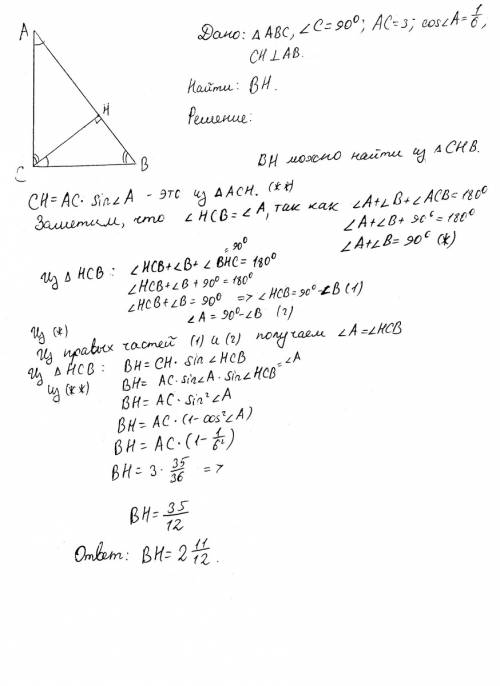 A
H
C
B
Дано: △ABC, ∠C=90°; AC=3; cos∠A=1/6,
CH⊥AB.
Найти: BH.
Решение:
BH можно найти из △CHB.
CH=AC·sin∠A - это из △ACH. (**)
Заметим, что ∠HCB=∠A, так как ∠A+∠B+∠ACB=180°
∠A+∠B+90°=180°
∠A+∠B=90° (*)
=90°
Из △HCB: ∠HCB+∠B+∠BHC=180°
∠HCB+∠B+90°=180°
∠HCB+∠B=90° => ∠HCB=90°-∠B (1)
Из (*) ∠A=90°-∠B (2)
Из правых частей (1) и (2) получаем ∠A=∠HCB
Из △HCB: BH=CH·sin∠HCB
=∠A
из (**) BH=AC·sin∠A·sin∠HCB
BH=AC·sin²∠A
BH=AC·(1-cos²∠A)
BH=AC·(1-1/6²)
BH=3·35/36 =>
BH=35/12
Ответ: BH=2 11/12.